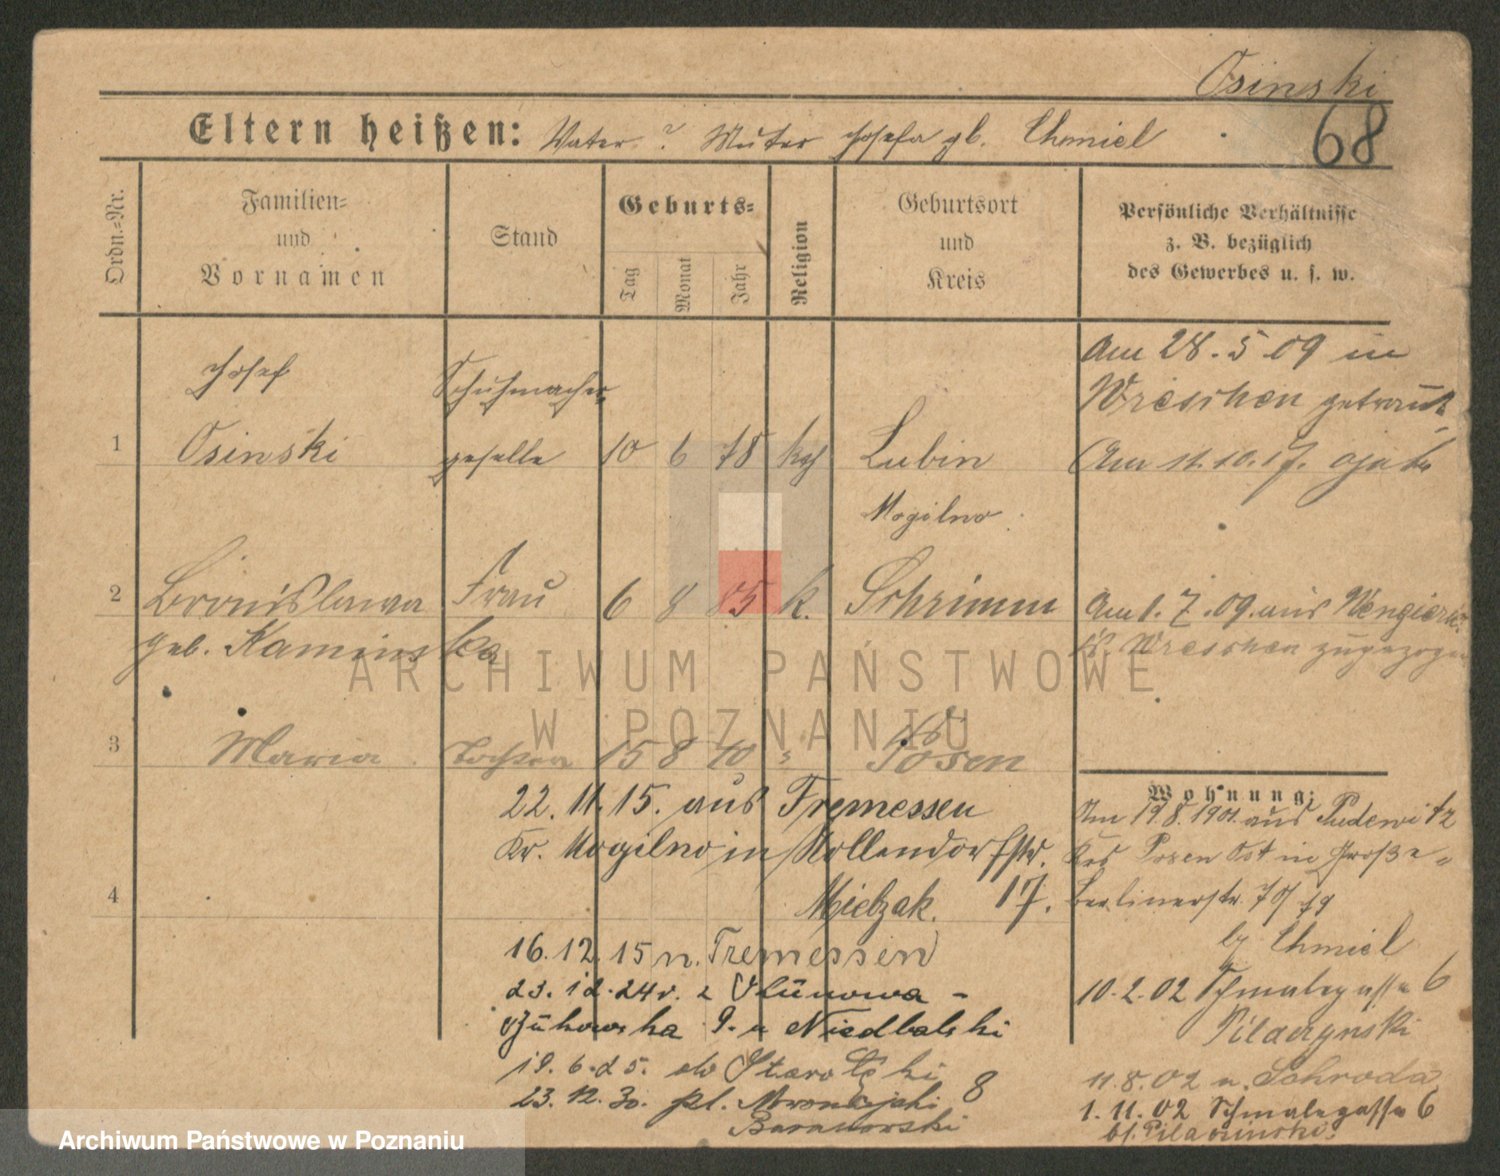 Osinski
68
Eltern heißen: Vater ? Mutter Josefa gb. Chmiel
Ordn.=Nr.
Familien=
und
Vornamen
Stand
Geburts=
Tag
Monat
Jahr
Religion
Geburtsort
und
Kreis
Persönliche Verhältnisse
z. B. bezüglich
des Gewerbes u. s. w.
Josef Schuhmacher
1 Osinski geselle 10 6 78 kath Lubin
Mogilno
Am 28.5.09 in
Wreschen getraut
Am 11.10.17.
2 Bronislawa Frau 6 8 85 k. Schrimm
geb. Kaminska
Am 1.7.09. aus
Kr. Wreschen zugezogen
3 Maria Tochter 15 8 10 Posen
22.11.15. aus Tremessen
Kr. Mogilno in Mollendorfstr.
17.
Mielzak.
4
16.12.15 n. Tremessen
23.12.24 v.
Żukowska 9. u Niedbalski
19.6.25. do
23.12.30. pl. 8
Baranowski
Wohnung:
Am 19.8.1901. aus Pudewitz
Krs Posen Ost in Große=
Berlinerstr.
by Chmiel
10.2.02 Schmalegasse 6
Pilaczynski
11.8.02 n. Schroda
1.11.02 Schmalegasse 6
bf. Pilaczinski.
ARCHIWUM PAŃSTWOWE
W POZNANIU
Archiwum Państwowe w Poznaniu